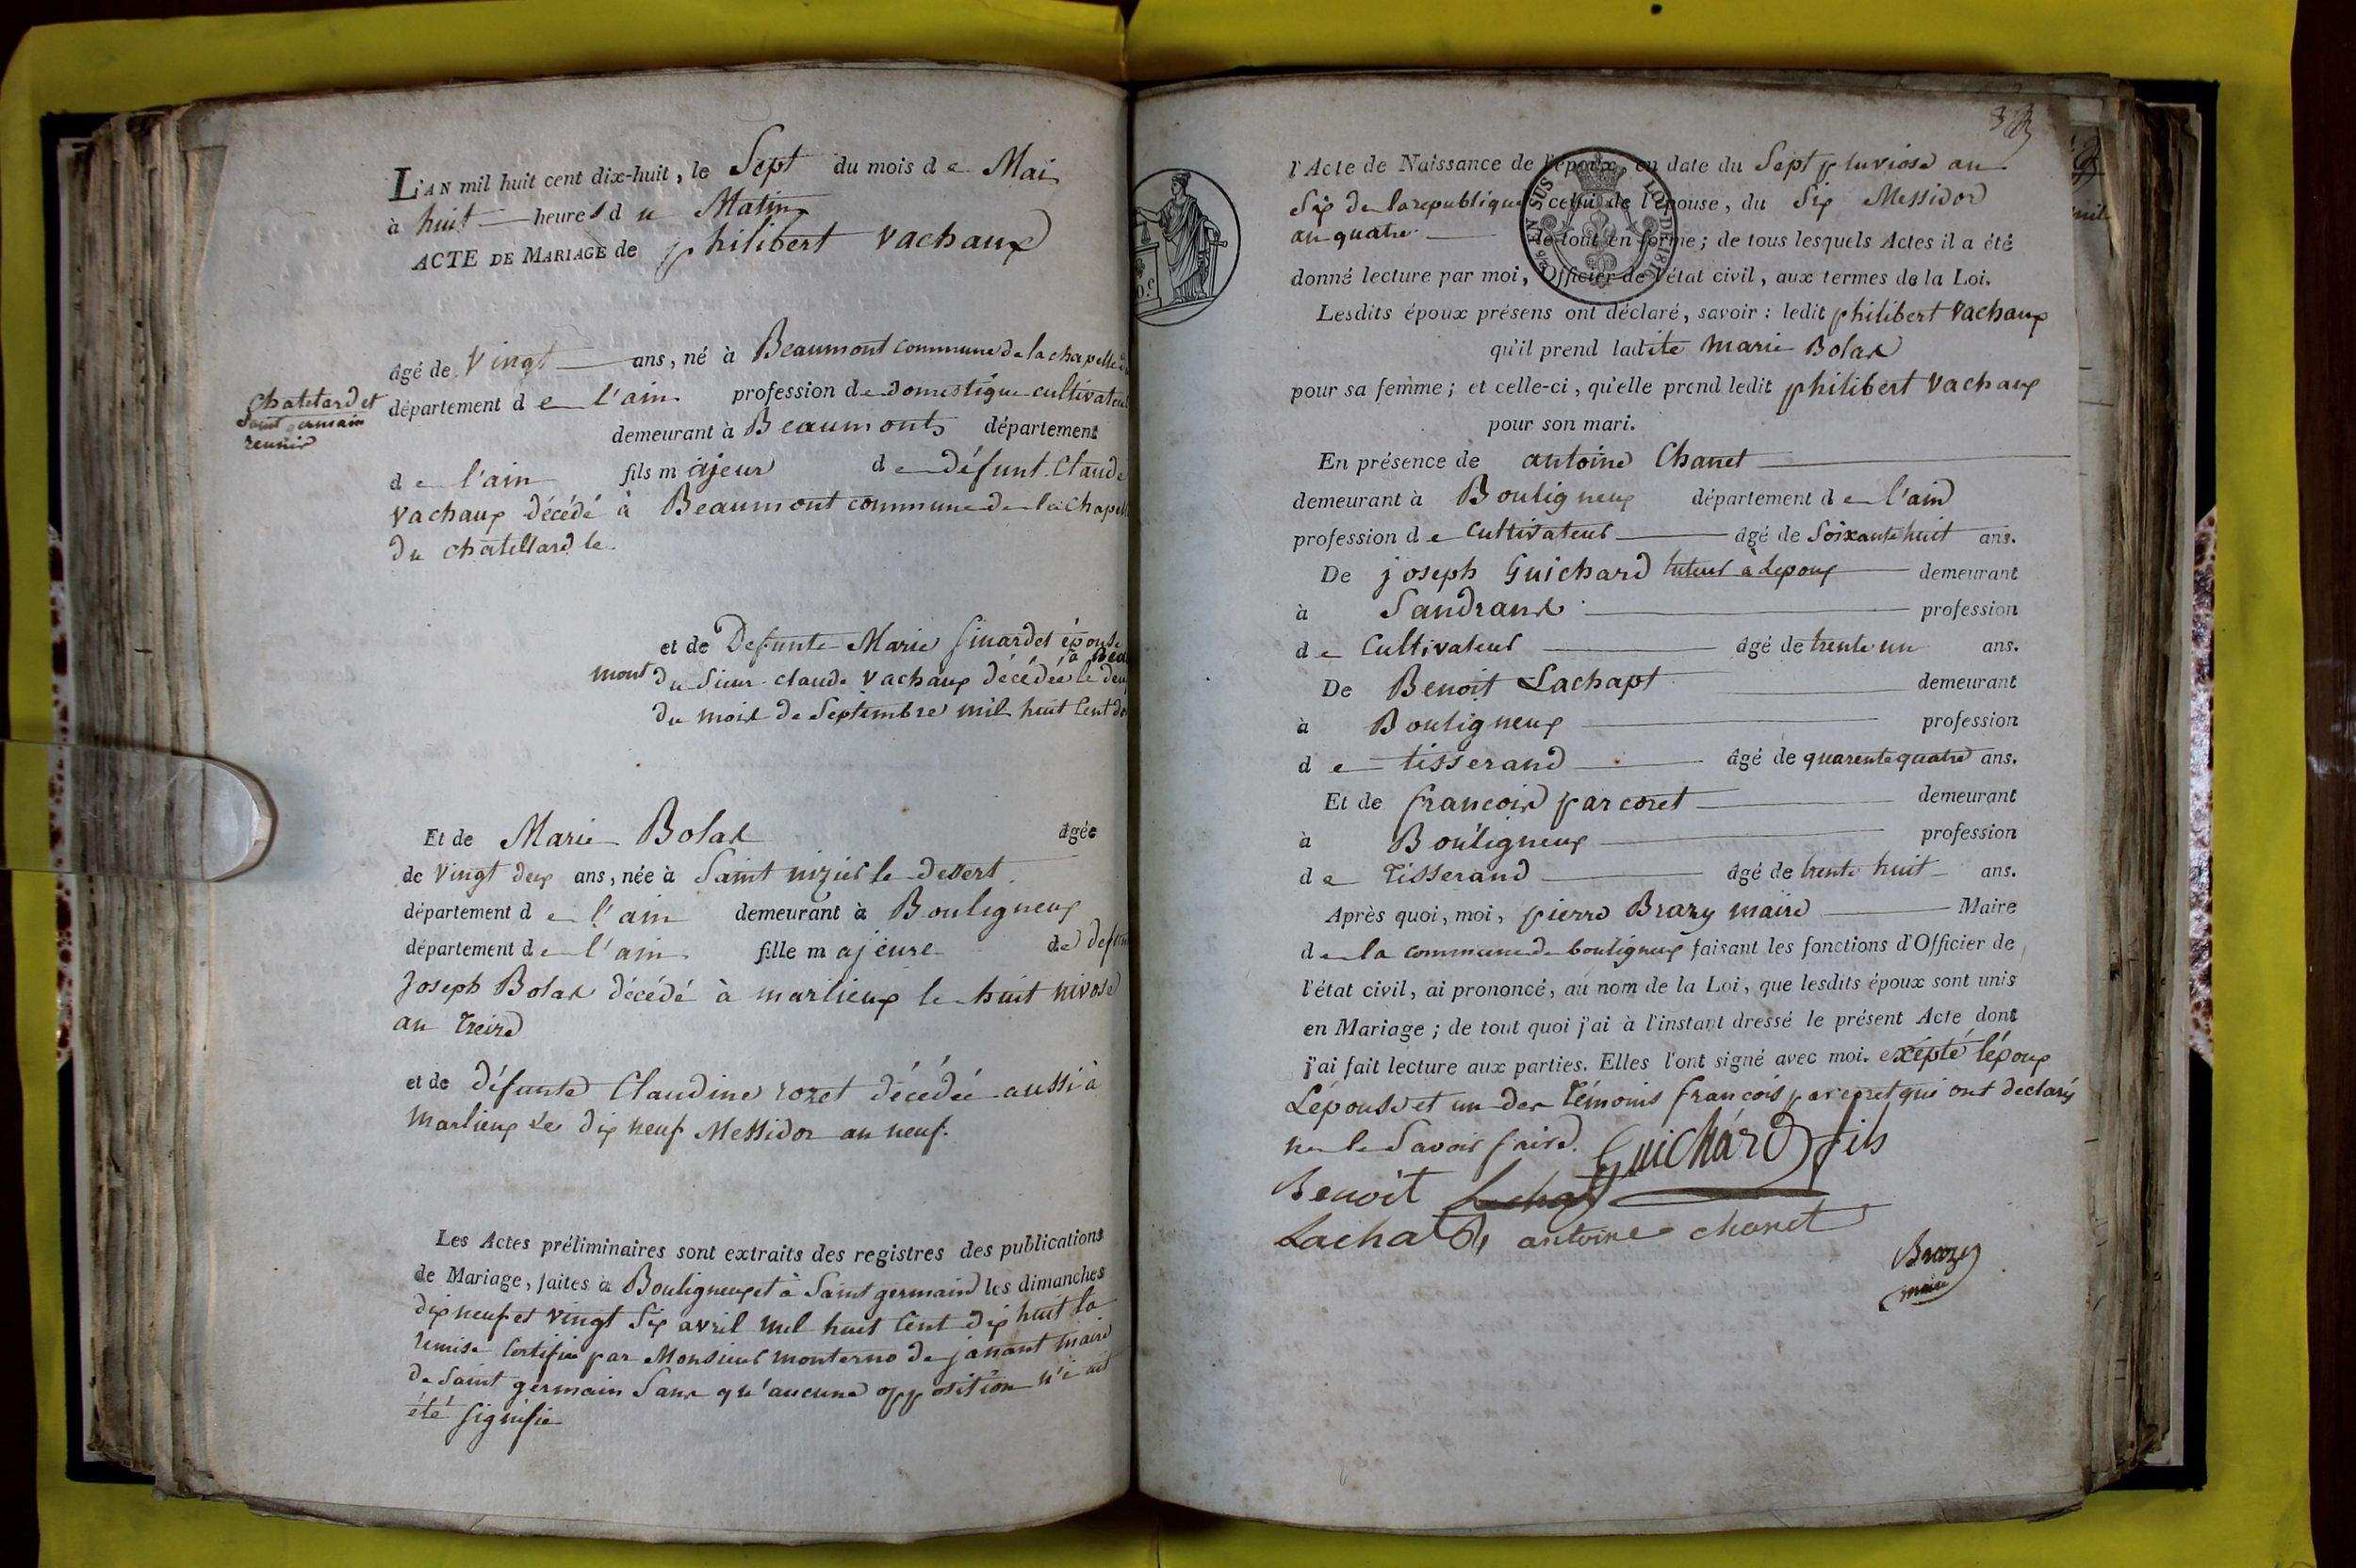 L'AN mil huit cent dix-huit, le Sept du mois de Mai
à huit heures du Matin
ACTE DE MARIAGE de philibert vachaux
âgé de Vingt ans, né à Beaumont commune de la chapelle du
Chatelard et
Saint germain
reunir
département de l'ain profession de domestique cultivateur
demeurant à Beaumonts département
de l'ain fils majeur de défunt Claude
vachaux décédé à Beaumont commune de la Chapelle
du chatellard le
et de Defunte Marie sinardet épouse
à Beau
mont du Sieur claude vachaux décédée le deux
du mois de Septembre mil huit Cent
Et de Marie Bolas agée
de Vingt deux ans, née à Saint nizier le desert
département de l'ain demeurant à Bouligneux
département de l'ain fille majeure de defunt
Joseph Bolas décédé à marlieux le huit nivose
an treize
et de défunte Claudine rozet décédée aussi à
marlieux Le dix neuf Messidor an neuf.
Les Actes préliminaires sont extraits des registres des publications
de Mariage, faites à Bouligneux et à Saint germain les dimanches
dix neuf et vingt Six avril mil huit Cent dix huit la
remise Certifié par Monsieur monterno de janant maire
de Saint germain Sans qu'aucune opposition n'i ait
été signifie
l'Acte de Naissance de l'époux, en date du Sept pluviose an
Six de la republique celui de l'épouse, du Six Messidor
an quatre le tout en forme; de tous lesquels Actes il a été
donné lecture par moi, Officier de l'état civil, aux termes de la Loi.
Lesdits époux présens ont déclaré, savoir: ledit philibert vachaux
qu'il prend ladite marie Bolas
pour sa femme; et celle-ci, qu'elle prend ledit philibert vachaux
pour son mari.
En présence de antoine Chanet
demeurant à Bouligneux département de l'ain
profession de Cultivateur âgé de Soixante huit ans.
De joseph Guichard tuteur à Lepoux demeurant
à Sandrans profession
de Cultivateur âgé de trente un ans.
De Benoit Lachapt demeurant
à Bouligneux profession
de tisserand âgé de quarente quatre ans.
Et de francois parcoret demeurant
à Bouligneux profession
de Tisserand âgé de trente huit ans.
Après quoi, moi, pierre Brazy maire Maire
de la commune de bouligneux faisant les fonctions d'Officier de
l'état civil, ai prononcé, au nom de la Loi, que lesdits époux sont unis
en Mariage; de tout quoi j'ai à l'instant dressé le présent Acte dont
j'ai fait lecture aux parties. Elles l'ont signé avec moi. exépté lépoux
Lépouse et un des Témoins francois parcoret qui ont declarés
ne le Savoir faire. Guichard fils
Benoit
Lachapt antoine chanet
Brazy
maire